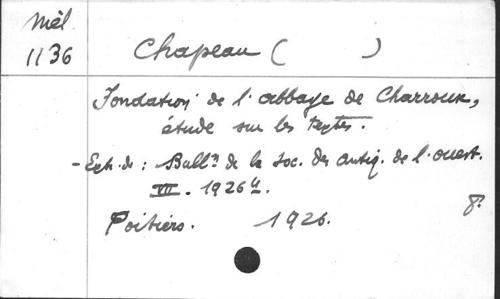 Mél
1136
Chapeau ( )
Fondation de l'abbaye de Charroux,
étude sur les textes.
- Extr. de : Bull.n de la Soc. des antiq. de l'ouest.
VII. 1926
Poitiers. 1926.
8º